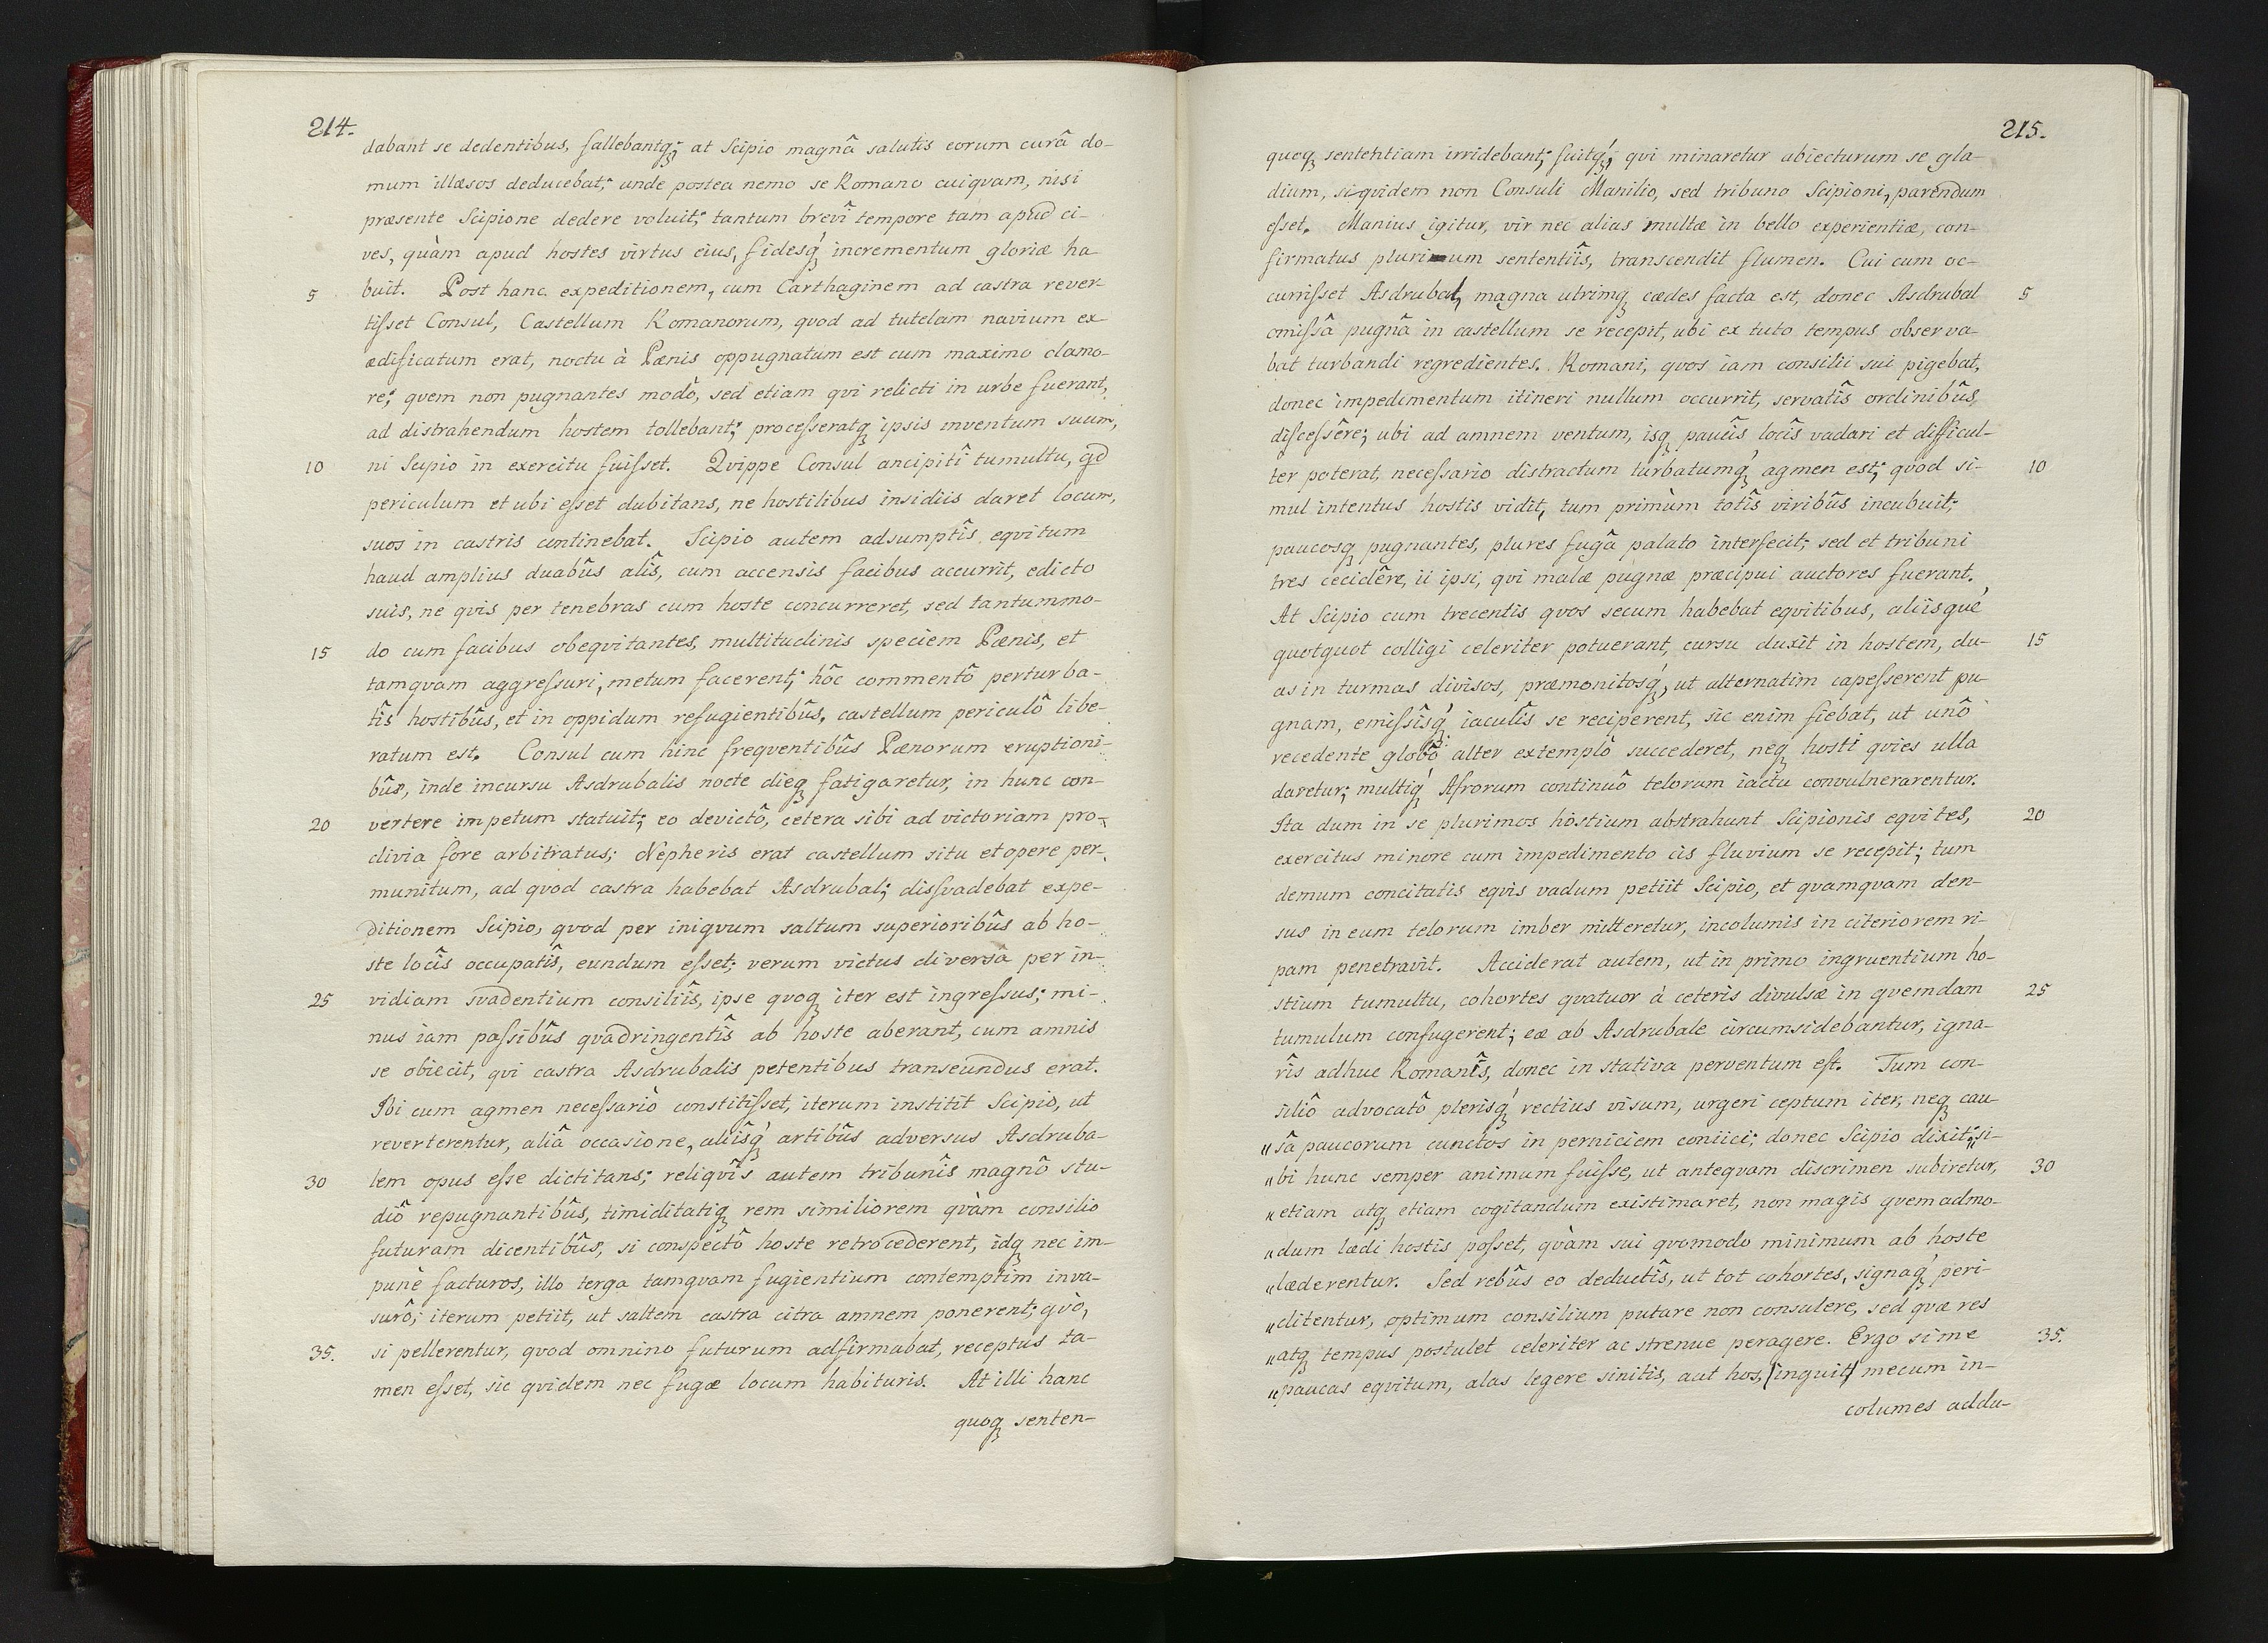 214.
dabant se dedentibus, fallebantq; at Scipio magnâ salutis eorum curâ do-
mum illæsos deducebat; unde postea nemo se Romano cuiqvam, nisi
præsente Scipione dedere voluit; tantum brevî tempore tam apud ci-
ves, quàm apud hostes virtus eius, fidesq́ incrementum gloriæ ha
5 buit. Post hanc expeditionem, cum Carthaginem ad castra rever-
tisset Consul, Castellum Romanorum, qvod ad tutelam navium ex
ædificatum erat, noctu à Pœnis oppugnatum est cum maximo clamo-
re; qvem non pugnantes modò, sed etiam qvi relicti in urbe fuerant,
ad distrahendum hostem tollebant; processeratq ipsis inventum suum,
10 ni Scipio in exercitu fuisset. Qvippe Consul ancipitî tumultu, qd
periculum et ubi esset dubitans, ne hostilibus insidiis daret locum,
suos in castris continebat. Scipio autem adsumptîs eqvitum
haud amplius duabûs alîs, cum accensis facibus accurrit, edicto
suis, ne qvis per tenebras cum hoste concurreret, sed tantummo-
15 do cum facibus obeqvitantes, multitudinis speciem Pœnis, et
tamqvam aggressuri, metum facerent; hôc commentô perturba-
tîs hostibûs, et in oppidum refugientibûs, castellum periculô libe-
ratum est. Consul cum hinc freqventibûs Pœnorum eruptioni-
bûs, inde incursu Asdrubalis nocte dieq fatigaretur, in hunc con-
20 vertere impetum statuit; eo devictô, cetera sibi ad victoriam pro-
clivia fore arbitratus; Nepheris erat castellum situ et opere per-
munitum, ad qvod castra habebat Asdrubal; dissvadebat expe-
ditionem Scipio, qvod per iniqvum saltum superioribûs ab ho-
ste locîs occupatîs, eundum esset; verum victus diversâ per in-
25 vidiam svadentium consiliîs, ipse qvoq iter est ingressus; mi-
nus iam passibûs qvadringentîs ab hoste aberant, cum amnis
se obiecit, qvi castra Asdrubalis petentibus transeundus erat.
Ibi cum agmen necessariò constitisset, iterum institit Scipio, ut
reverterentur, aliâ occasione, aliîsq́ artibûs adversus Asdruba-
30 lem opus esse dictitans; reliqvîs autem tribunîs magnô stu-
diô repugnantibûs, timiditatiq rem similiorem qvàm consilio
futuram dicentibûs, si conspectô hoste retrocederent, idq nec im-
punè facturos, illo terga tamqvam fugientium contemptim inva-
surô; iterum petiit, ut saltem castra citra amnem ponerent; qvò,
35. si pellerentur, qvod omnino futurum adfirmabat, receptus ta-
men esset, sic qvidem nec fugæ locum habituris. At illi hanc
quoq senten-
215.
quoq sententiam irridebant; fuitq́, qvi minaretur abiecturum se gla-
dium, siqvidem non Consuli Manilio, sed tribuno Scipioni, parendum
esset. Manius igitur, vir nec alias multæ in bello experientiæ, con-
firmatus plurimum sententiîs, transcendit flumen. Cui cum oc-
currisset Asdrubal, magna utrimq cædes facta est, donec Asdrubal 5
omissâ pugnâ in castellum se recepit, ubi ex tuto tempus observa-
bat turbandi regredientes. Romani, qvos iam consilii sui pigebat,
donec impedimentum itineri nullum occurrit, servatîs ordinibûs,
discessêre; ubi ad amnem ventum, isq paucîs locîs vadari et difficul-
ter poterat, necessario distractum turbatumq́ agmen est; qvod si- 10
mul intentus hostis vidit, tum primùm totîs viribûs incubuit;
paucosq pugnantes, plures fugâ palato interfecit; sed et tribuni
tres cecidêre, ii ipsi, qvi malæ pugnæ præcipui auctores fuerant.
At Scipio cum trecentis qvos secum habebat eqvitibus, aliisque
quotquot colligi celeriter potuerant, cursu duxit in hostem, du- 15
as in turmas divisos, præmonitosq́, ut alternatim capesserent pu-
gnam, emissîsq́ iaculîs se reciperent, sic enim fiebat, ut unô
recedente globô alter extemplô succederet, neq hosti qvies ulla
daretur; multiq́ Afrorum continuô telorum iactu convulnerarentur.
Ita dum in se plurimos hostium abstrahunt Scipionis eqvites, 20
exercitus minore cum impedimento cis fluvium se recepit; tum
demum concitatis eqvis vadum petiit Scipio, et qvamqvam den-
sus in eum telorum imber mitteretur, incolumis in citeriorem ri-
pam penetravit. Acciderat autem, ut in primo ingruentium ho-
stium tumultu, cohortes qvatuor à ceteris divulsæ in qvemdam 25
tumulum confugerent; eæ ab Asdrubale circumsidebantur, igna-
rîs adhuc Romanîs, donec in stativa perventum est. Tum con-
siliô advocatô plerisq́ rectius visum, urgeri ceptum iter, neq cau-
„ sâ paucorum cunctos in perniciem coniici; donec Scipio dixit: „si-
„ bi hunc semper animum fuisse, ut anteqvam discrimen subiretur, 30
„ etiam atq etiam cogitandum existimaret, non magis qvemadmo-
„ dum lædi hostis posset, qvàm sui qvomodo minimum ab hoste
„ læderentur. Sed rebûs eo deductîs, ut tot cohortes, signaq́ peri-
„ clitentur, optimum consilium putare non consulere, sed qvæ res
„ atq tempus postulet celeriter ac strenue peragere. Ergo si me 35.
„ paucas eqvitum, alas legere sinitis, aut hos, (inquit) mecum in-
columes addu-